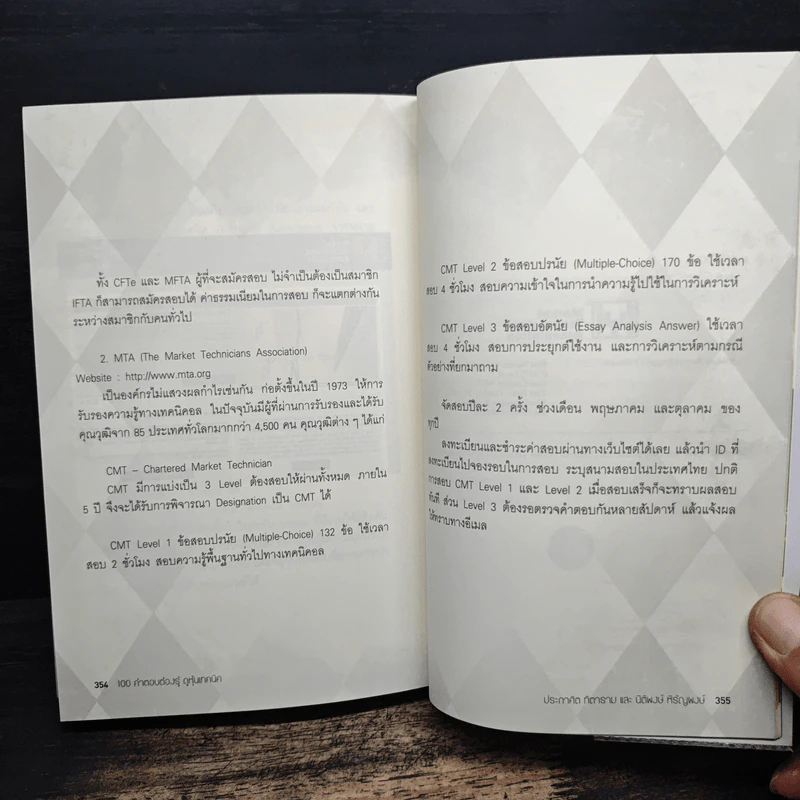 ทั้ง CFTe และ MFTA ผู้ที่จะสมัครสอบ ไม่จำเป็นต้องเป็นสมาชิก
IFTA ก็สามารถสมัครสอบได้ ค่าธรรมเนียมในการสอบ ก็จะแตกต่างกัน
ระหว่างสมาชิกกับคนทั่วไป
2. MTA (The Market Technicians Association)
Website : http://www.mta.org
เป็นองค์กรไม่แสวงผลกำไรเช่นกัน ก่อตั้งขึ้นในปี 1973 ให้การ
รับรองความรู้ทางเทคนิคอล ในปัจจุบันมีผู้ที่ผ่านการรับรองและได้รับ
คุณวุฒิจาก 85 ประเทศทั่วโลกมากกว่า 4,500 คน คุณวุฒิต่าง ๆ ได้แก่
CMT – Chartered Market Technician
CMT มีการแบ่งเป็น 3 Level ต้องสอบให้ผ่านทั้งหมด ภายใน
5 ปี จึงจะได้รับการพิจารณา Designation เป็น CMT ได้
CMT Level 1 ข้อสอบปรนัย (Multiple-Choice) 132 ข้อ ใช้เวลา
สอบ 2 ชั่วโมง สอบความรู้พื้นฐานทั่วไปทางเทคนิคอล
354 100 คำตอบต้องรู้ ดูหุ้นเทคนิค
CMT Level 2 ข้อสอบปรนัย (Multiple-Choice) 170 ข้อ ใช้เวลา
สอบ 4 ชั่วโมง สอบความเข้าใจในการนำความรู้ไปใช้ในการวิเคราะห์
CMT Level 3 ข้อสอบอัตนัย (Essay Analysis Answer) ใช้เวลา
สอบ 4 ชั่วโมง สอบการประยุกต์ใช้งาน และการวิเคราะห์ตามกรณี
ตัวอย่างที่ยกมาถาม
จัดสอบปีละ 2 ครั้ง ช่วงเดือน พฤษภาคม และตุลาคม ของ
ทุกปี
ลงทะเบียนและชำระค่าสอบผ่านทางเว็บไซต์ได้เลย แล้วนำ ID ที่
ลงทะเบียนไปจองรอบในการสอบ ระบุสนามสอบในประเทศไทย ปกติ
การสอบ CMT Level 1 และ Level 2 เมื่อสอบเสร็จก็จะทราบผลสอบ
ทันที ส่วน Level 3 ต้องรอตรวจคำตอบกันหลายสัปดาห์ แล้วแจ้งผล
ให้ทราบทางอีเมล
ประกาศิต ทิตาราม และ นิติพงษ์ หิรัญพงษ์ 355